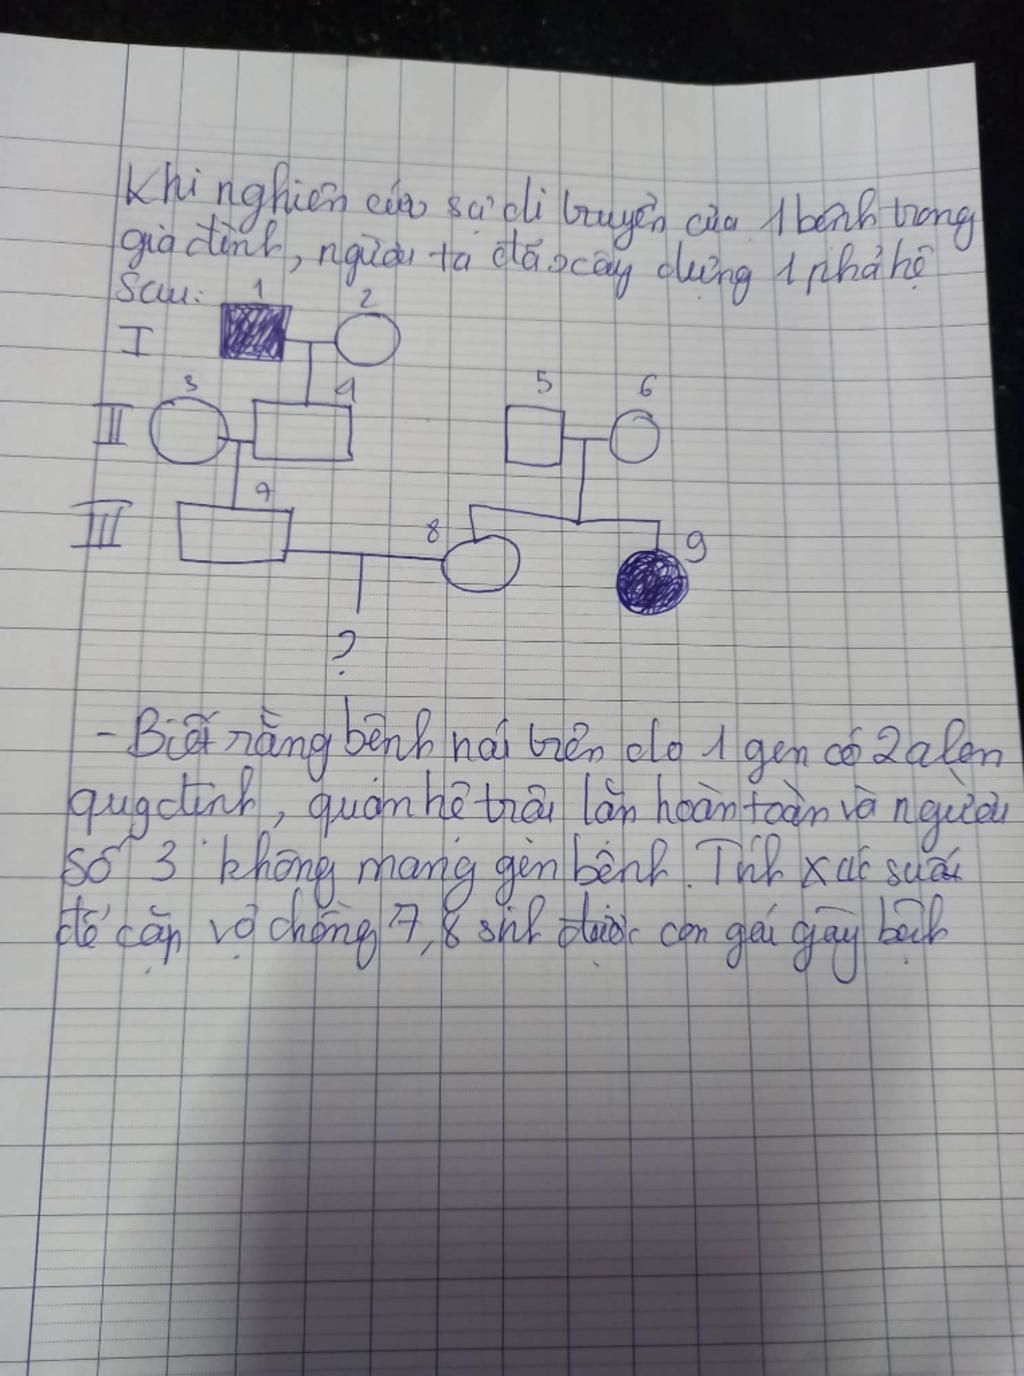 Khi nghiên cứu sự di truyền của 1 bệnh trong
gia đình, người ta đã xây dựng 1 phả hệ
sau: 1 2
I
3 4 5 6
II
7 8 9
III
?
- Biết rằng bệnh nói trên do 1 gen có 2 alen
quy định, quan hệ trội lặn hoàn toàn và người
số 3 không mang gen bệnh. Tính xác suất
để cặp vợ chồng 7, 8 sinh được con gái gây bệnh